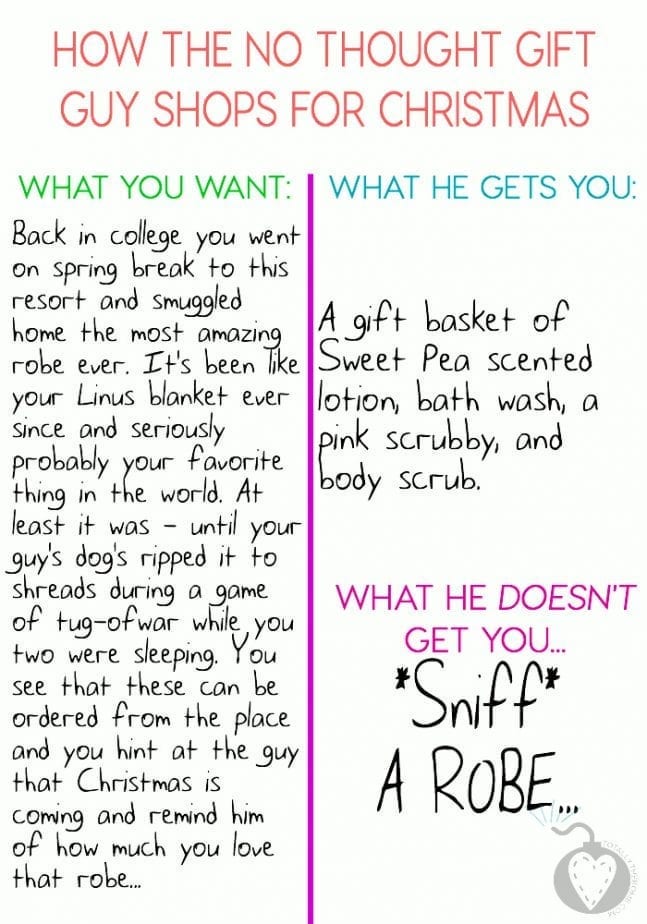 HOW THE NO THOUGHT GIFT
GUY SHOPS FOR CHRISTMAS
WHAT YOU WANT:
Back in college you went
on spring break to this
resort and smuggled
home the most amazing
robe ever. It's been like
your Linus blanket ever
since and seriously
probably your favorite
thing in the world. At
least it was - until your
guy's dog's ripped it to
shreds during a game
of tug-ofwar while you
two were sleeping. You
see that these can be
ordered from the place
and you hint at the guy
that Christmas is
coming and remind him
of how much you love
that robe...
WHAT HE GETS YOU:
A gift basket of
Sweet Pea scented
lotion, bath wash, a
pink scrubby, and
body scrub.
WHAT HE DOESN'T
GET YOU...
*Sniff*
A ROBE...
TOTALLYTHEBOMB.COM